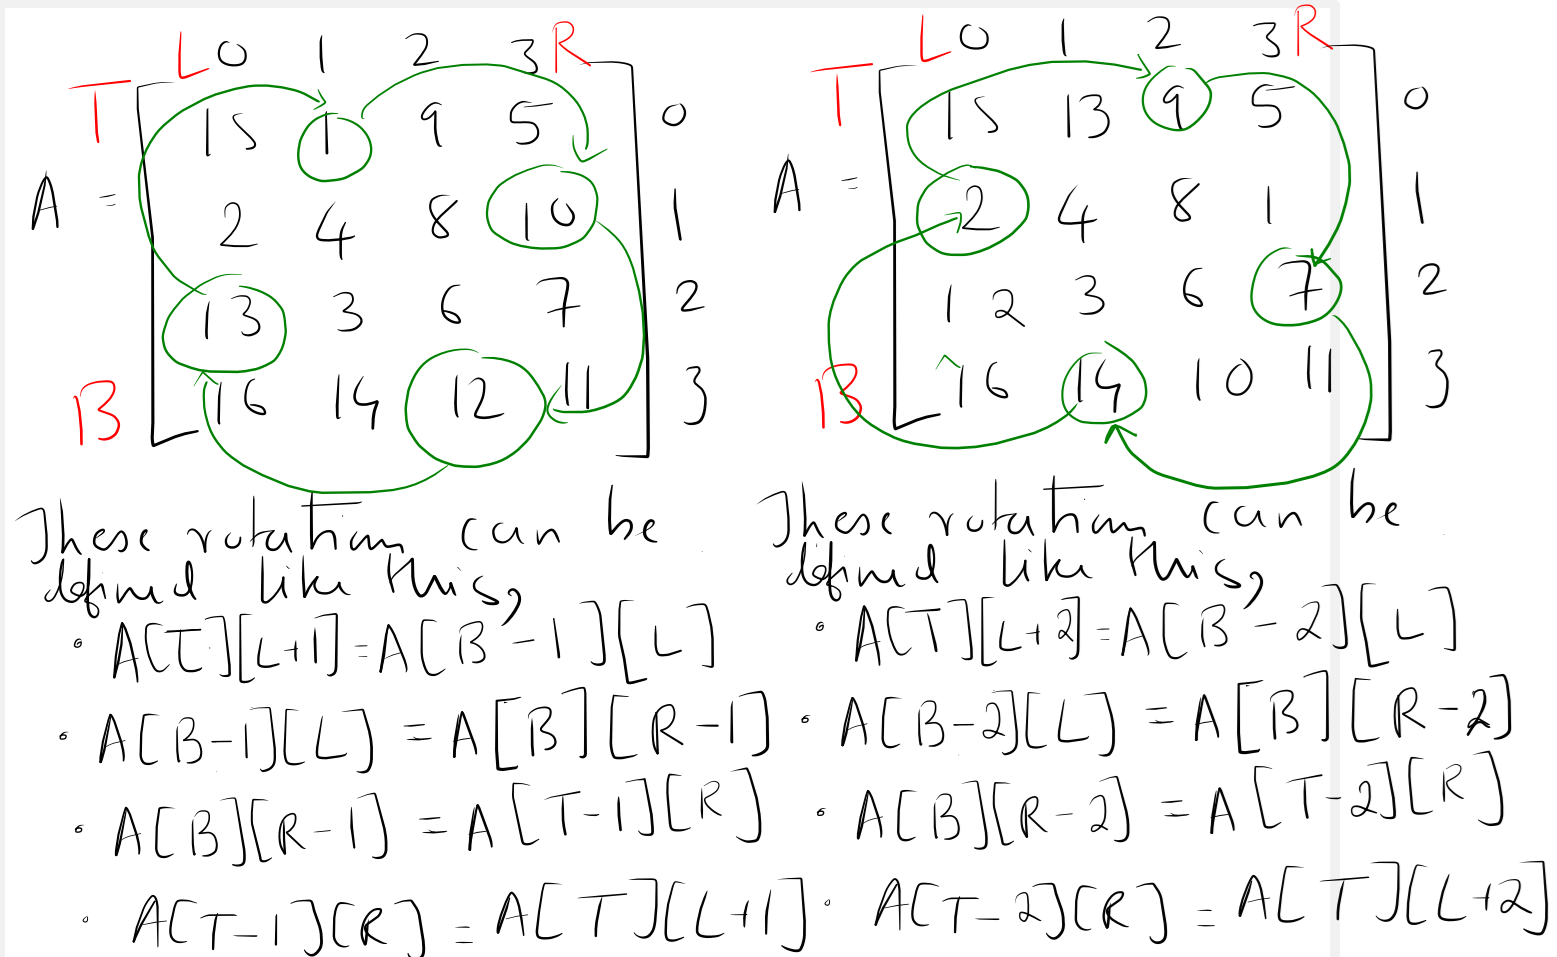 L 0 1 2 3 R
T
15 1 9 5 0
A = 2 4 8 10 1
13 3 6 7 2
B 16 14 12 11 3
These rotation can be
defined like this,
• A[T][L+1]=A[B-1][L]
• A[B-1][L] = A[B][R-1]
• A[B][R-1] = A[T-1][R]
• A[T-1][R] = A[T][L+1]
L 0 1 2 3 R
T
15 13 9 5 0
A = 2 4 8 1 1
12 3 6 7 2
B 16 14 10 11 3
These rotation can be
defined like this,
• A[T][L+2]=A[B-2][L]
• A[B-2][L] = A[B][R-2]
• A[B][R-2] = A[T-2][R]
• A[T-2][R] = A[T][L+2]